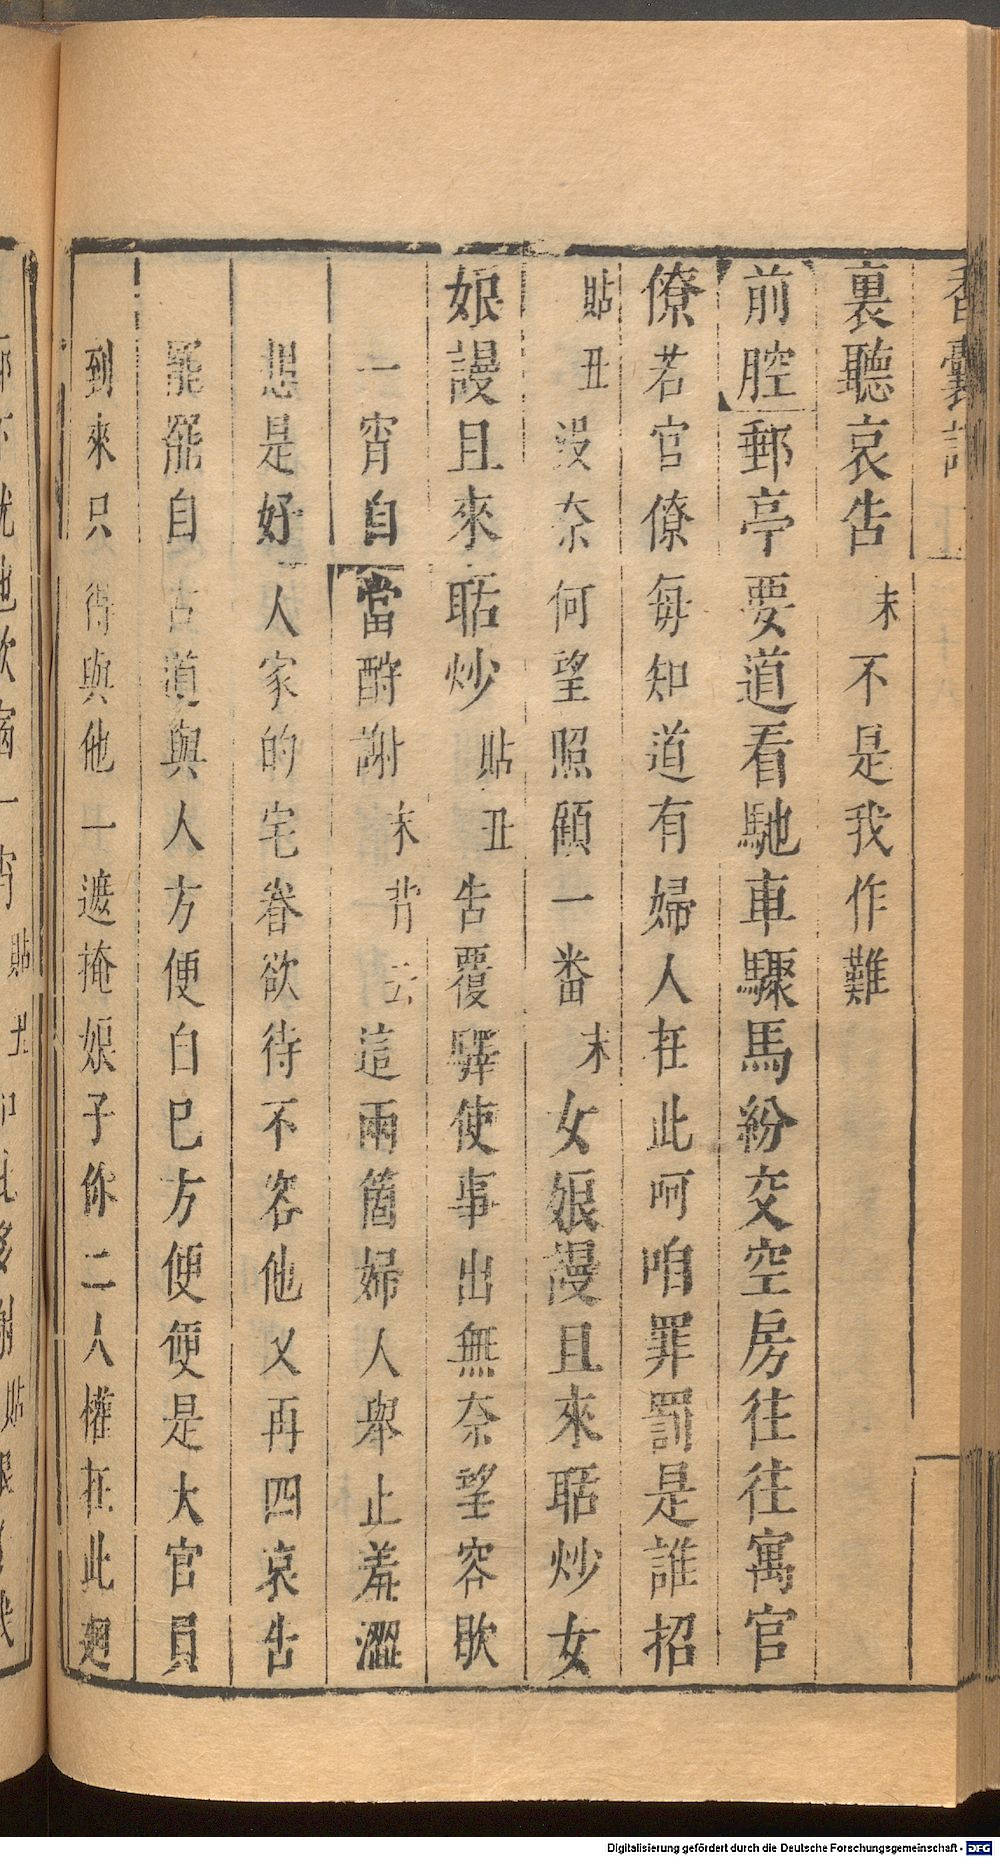 香囊記
裏聽哀告末不是我作難
前腔郵亭要道看馳車驟馬紛交空房往往寓官
僚若官僚每知道有婦人在此呵咱罪罰是誰招
貼丑沒奈何望照顧一番末女娘謾且來聒炒女
娘謾且來聒炒貼丑告覆驛使事出無奈望容歇
一宵自當酧謝末背云這兩箇婦人舉止羞澀
想是好人家的宅眷欲待不容他又再四哀告
罷罷自古道與人方便自己方便便是大官員
到來只得與他一遮掩娘子你二人權在此廻
Digitalisierung gefördert durch die Deutsche Forschungsgemeinschaft - DFG